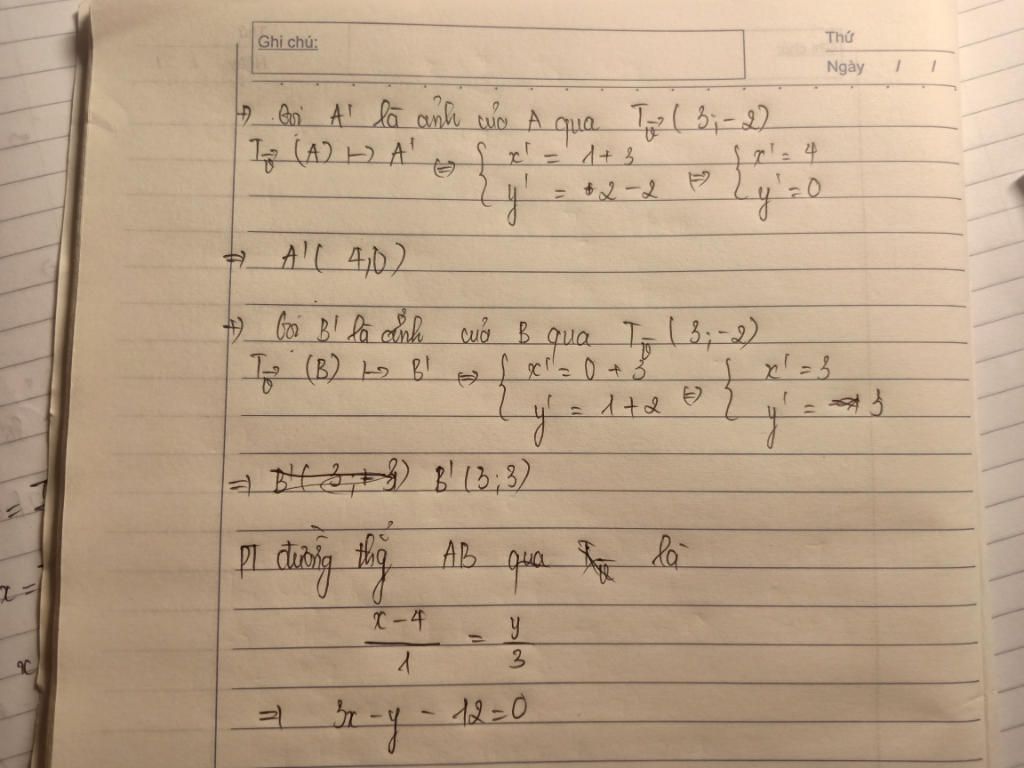 Ghi chú:
Thứ
Ngày / /
+) Gọi A' là ảnh của A qua T_v⃗ (3;-2)
T_v⃗ (A) ↦ A' ⇔ { x' = 1+3 ; y' = 2-2 ⇔ { x' = 4 ; y' = 0
⇒ A'( 4,0)
+) Gọi B' là ảnh của B qua T_v⃗ (3;-2)
T_v⃗ (B) ↦ B' ⇔ { x' = 0+3 ; y' = 1+2 ⇔ { x' = 3 ; y' = 3
⇒ B'(3;3)
PT đường thg AB qua là
(x-4)/1 = y/3
⇒ 3x - y - 12 = 0